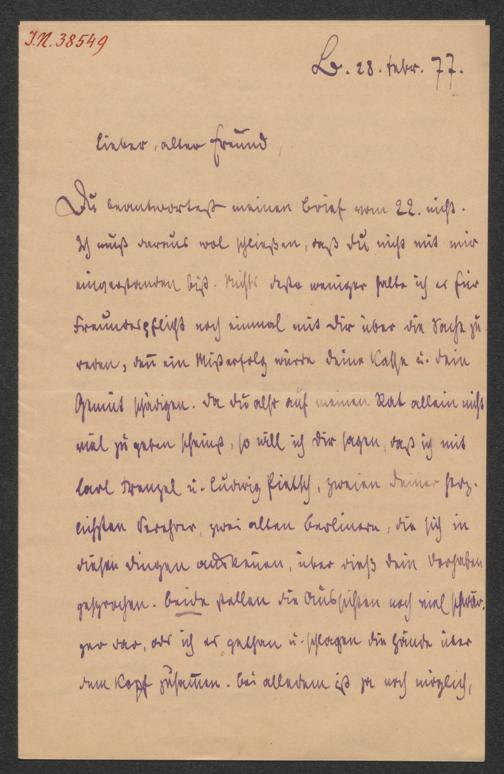 I.N. 38549
B. 28. febr. 77.
Lieber, alter Freund,
Du beantwortest meinen Brief vom 22. nicht.
Ich muß daraus wol schließen, daß Du nicht mit mir
einverstanden bist. Nichts desto weniger halte ich es für
Freundespflicht noch einmal mit Dir über die Sache zu
reden, deñ ein Mißerfolg würde deine Kasse u. dein
Gemüt schädigen. Da du also auf meinen Rat allein nicht
viel zu geben scheinst, so will ich Dir sagen, daß ich mit
Carl Frenzel u. Ludwig Pietsch, zweien deiner herz-
lichsten Verehrer, zwei alten Berlinern, die sich in
diesen Dingen auskeñen, über dieß dein Vorhaben
gesprochen. Beide stellen die Aussichten noch viel schwär-
zer dar, als ich es gethan u. schlagen die Hände über
dem Kopf zusam̄en. Bei alledem ist ja noch möglich,